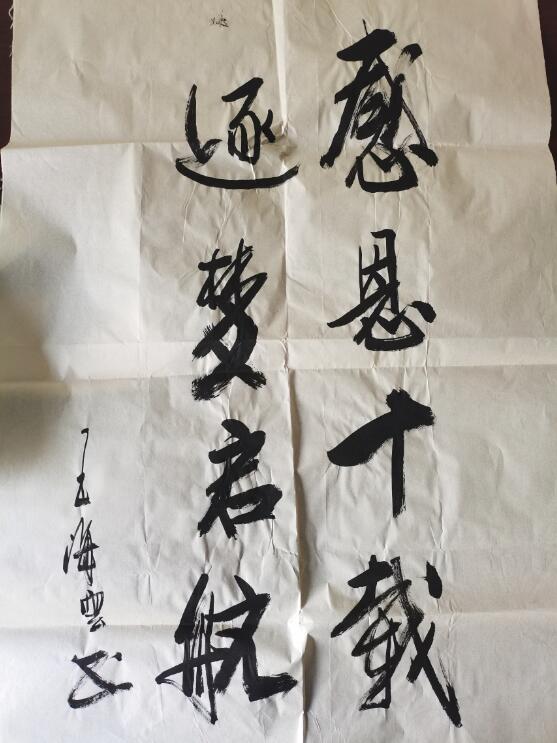 感恩十载
逐梦启航
王海云书